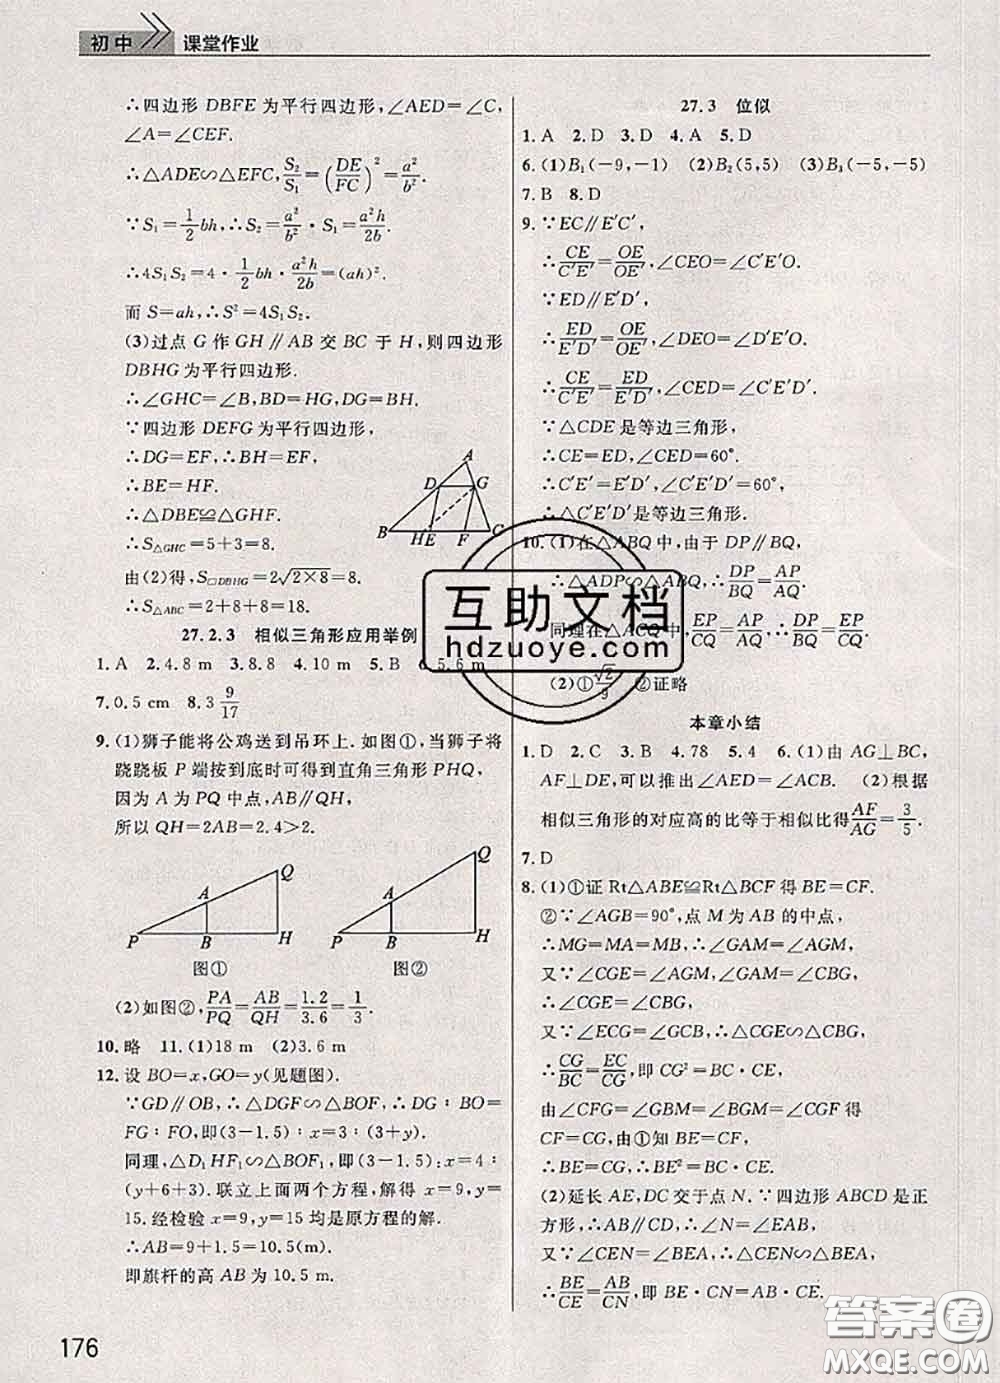 初中 课堂作业
∴四边形 DBFE 为平行四边形，∠AED=∠C，
∠A=∠CEF.
∴△ADE∽△EFC，S₂/S₁=(DE/FC)²=a²/b².
∵S₁=1/2 bh，∴S₂=a²/b²·S₁=a²h/2b.
∴4S₁S₂=4·1/2 bh·a²h/2b=(ah)².
而 S=ah，∴S²=4S₁S₂.
(3)过点 G 作 GH∥AB 交 BC 于 H，则四边形
DBHG 为平行四边形.
∴∠GHC=∠B，BD=HG，DG=BH.
∵四边形 DEFG 为平行四边形，
∴DG=EF，∴BH=EF.
∴BE=HF.
∴△DBE≌△GHF.
∴S△GHC=5+3=8.
由(2)得，S□DBHG=2√(2×8)=8.
∴S△ABC=2+8+8=18.
A
D
G
B
H
E
F
C
27.2.3 相似三角形应用举例
1.A 2.4.8 m 3.8.8 4.10 m 5.B 6.5.6 m
7.0.5 cm 8.3 9/17
9.(1)狮子能将公鸡送到吊环上.如图①，当狮子将
跷跷板 P 端按到底时可得到直角三角形 PHQ，
因为 A 为 PQ 中点，AB∥QH，
所以 QH=2AB=2.4>2.
P A B Q H
图①
P A B Q H
图②
(2)如图②，PA/PQ=AB/QH=1.2/3.6=1/3.
10.略 11.(1)18 m (2)3.6 m
12.设 BO=x，GO=y(见题图).
∵GD∥OB，∴△DGF∽△BOF，∴DG∶BO=
FG∶FO，即(3-1.5)∶x=3∶(3+y).
同理，△D₁HF₁∽△BOF₁，即(3-1.5)∶x=4∶
(y+6+3).联立上面两个方程，解得 x=9，y=
15.经检验 x=9，y=15 均是原方程的解.
∴AB=9+1.5=10.5(m).
即旗杆的高 AB 为 10.5 m.
176
27.3 位似
1.A 2.D 3.D 4.A 5.D
6.(1)B₁(-9,-1) (2)B₂(5,5) (3)B₃(-5,-5)
7.B 8.D
9.∵EC∥E′C′，
∴CE/C′E′=OE/OE′，∠CEO=∠C′E′O.
∵ED∥E′D′，
∴ED/E′D′=OE/OE′，∠DEO=∠D′E′O.
∴CE/C′E′=ED/E′D′，∠CED=∠C′E′D′.
∵△CDE 是等边三角形，
∴CE=ED，∠CED=60°.
∴C′E′=E′D′，∠C′E′D′=60°，
∴△C′E′D′是等边三角形.
10.(1)在△ABQ 中，由于 DP∥BQ，
∴△ADP∽△ABQ，∴DP/BQ=AP/AQ.
同理在△ACQ 中，EP/CQ=AP/AQ，∴DP/BQ=EP/CQ.
(2)①√2/9 ②证略
本章小结
1.D 2.C 3.B 4.78 5.4 6.(1)由 AG⊥BC，
AF⊥DE，可以推出∠AED=∠ACB. (2)根据
相似三角形的对应高的比等于相似比得 AF/AG=3/5.
7.D
8.(1)①证 Rt△ABE≌Rt△BCF 得 BE=CF.
②∵∠AGB=90°，点 M 为 AB 的中点，
∴MG=MA=MB，∴∠GAM=∠AGM，
又∵∠CGE=∠AGM，∠GAM=∠CBG，
∴∠CGE=∠CBG，
又∵∠ECG=∠GCB，∴△CGE∽△CBG，
∴CG/BC=EC/CG，即 CG²=BC·CE，
由∠CFG=∠GBM=∠BGM=∠CGF 得
CF=CG，由①知 BE=CF，
∴BE=CG，∴BE²=BC·CE.
(2)延长 AE，DC 交于点 N.∵四边形 ABCD 是正
方形，∴AB∥CD，∴∠N=∠EAB，
又∵∠CEN=∠BEA，∴△CEN∽△BEA，
∴BE/CE=AB/CN，即 BE·CN=AB·CE.
互助文档
hdzuoye.com
答案圈
MXQE.COM